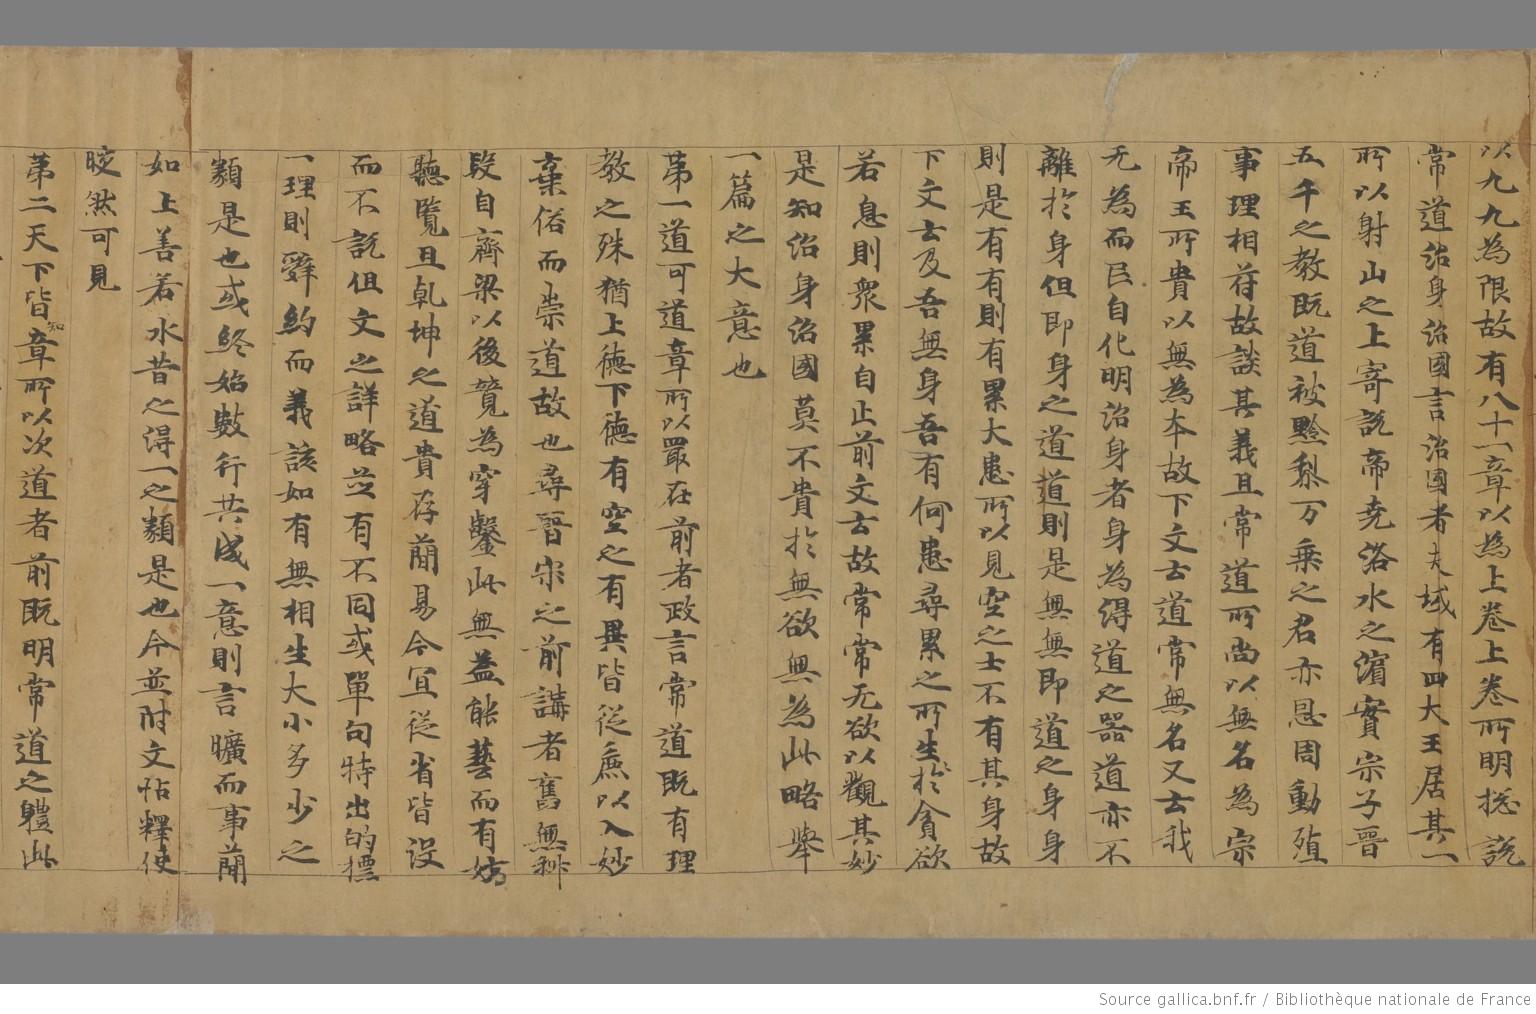 以九九為限故有八十一章以為上卷上卷所明捴說
常道治身治國言治國者夫域有四大王居其一
所以射山之上寄說帝尭洛水之濵實宗子晉
五千之教既道被黔梨万乗之君亦恩周動殖
事理相符故談其義且常道所尚以無名為宗
帝王所貴以無為為本故下文云道常無名又云我
无為而民自化明治身者身為得道之器道亦不
離於身但即身之道道則是無無即道之身身
則是有有則有累大患所以見空之士不有其身故
下文云及吾無身吾有何患尋累之所生於貪欲
若息則衆累自止前文云故常常无欲以觀其妙
是知治身治國莫不貴於無欲無為此略舉
一篇之大意也
苐一道可道章所以冣在前者政言常道既有理
教之殊猶上德下德有空之有異皆従麁以入妙
棄俗而崇道故也尋晉宋之前講者舊無科
段自齊梁以後競為穿鑿此無益能藝而有妨
聽覽且乹坤之道貴存蕳易今冝従省皆沒
而不說但文之詳略並有不同或單句特出的摽
一理則辤約而義該如有無相生大小多少之
類是也或終始數行共成一意則言曠而事蕳
如上善若水昔之得一之類是也今並附文帖釋使
晈然可見
苐二天下皆知章所以次道者前既明常道之軆此
Source gallica.bnf.fr / Bibliothèque nationale de France